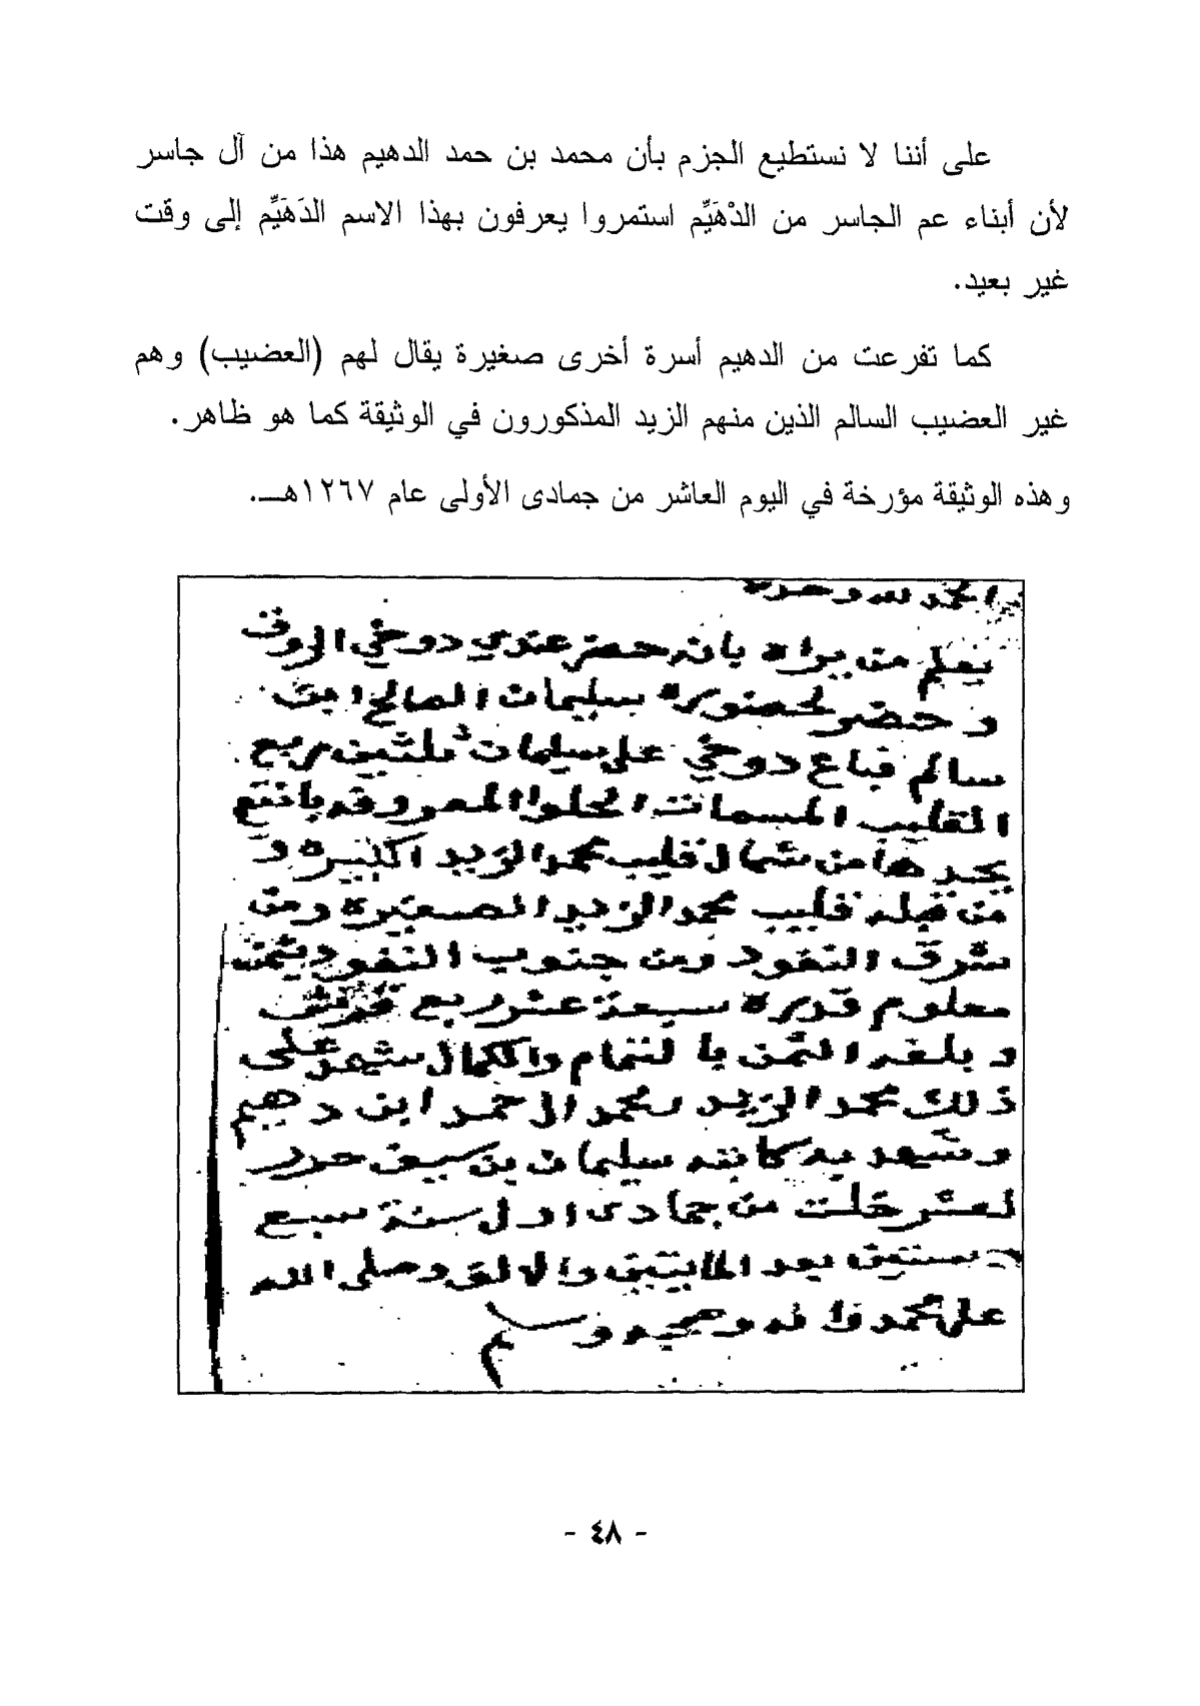 على أننا لا نستطيع الجزم بأن محمد بن حمد الدهيم هذا من آل جاسر
لأن أبناء عم الجاسر من الدْهَيِّم استمروا يعرفون بهذا الاسم الدَهَيِّم إلى وقت
غير بعيد.
كما تفرعت من الدهيم أسرة أخرى صغيرة يقال لهم (العضيب) وهم
غير العضيب السالم الذين منهم الزيد المذكورون في الوثيقة كما هو ظاهر.
وهذه الوثيقة مؤرخة في اليوم العاشر من جمادى الأولى عام ١٢٦٧هـ.
الحمد لله وحده
يعلم من يراه بانه حضر عندي دوخي
وحضر لحضوره سليمان الصالح ابن
سالم فباع دوخي على سليمان ثلثين ربع
القليب المسمات الحلوا المعروفه
يحدها من شمال قليب محمد الزيد الكبيره و
من قبله قليب محمد الزيد الصغيره ومن
شرق النفود ومن جنوب النفود بثمن
معلوم قدره سبعة عشر ربع
وبلغه الثمن بالتمام والكمال شهد على
ذلك محمد الزيد ومحمد ال حمد ابن دهيم
وشهد به كاتبه سليمان بن سيف حرر
لعشر خلت من جمادى اول سنة سبع
وستين بعد المايتين والالف وصلى الله
على محمد واله وصحبه وسلم
- ٤٨ -